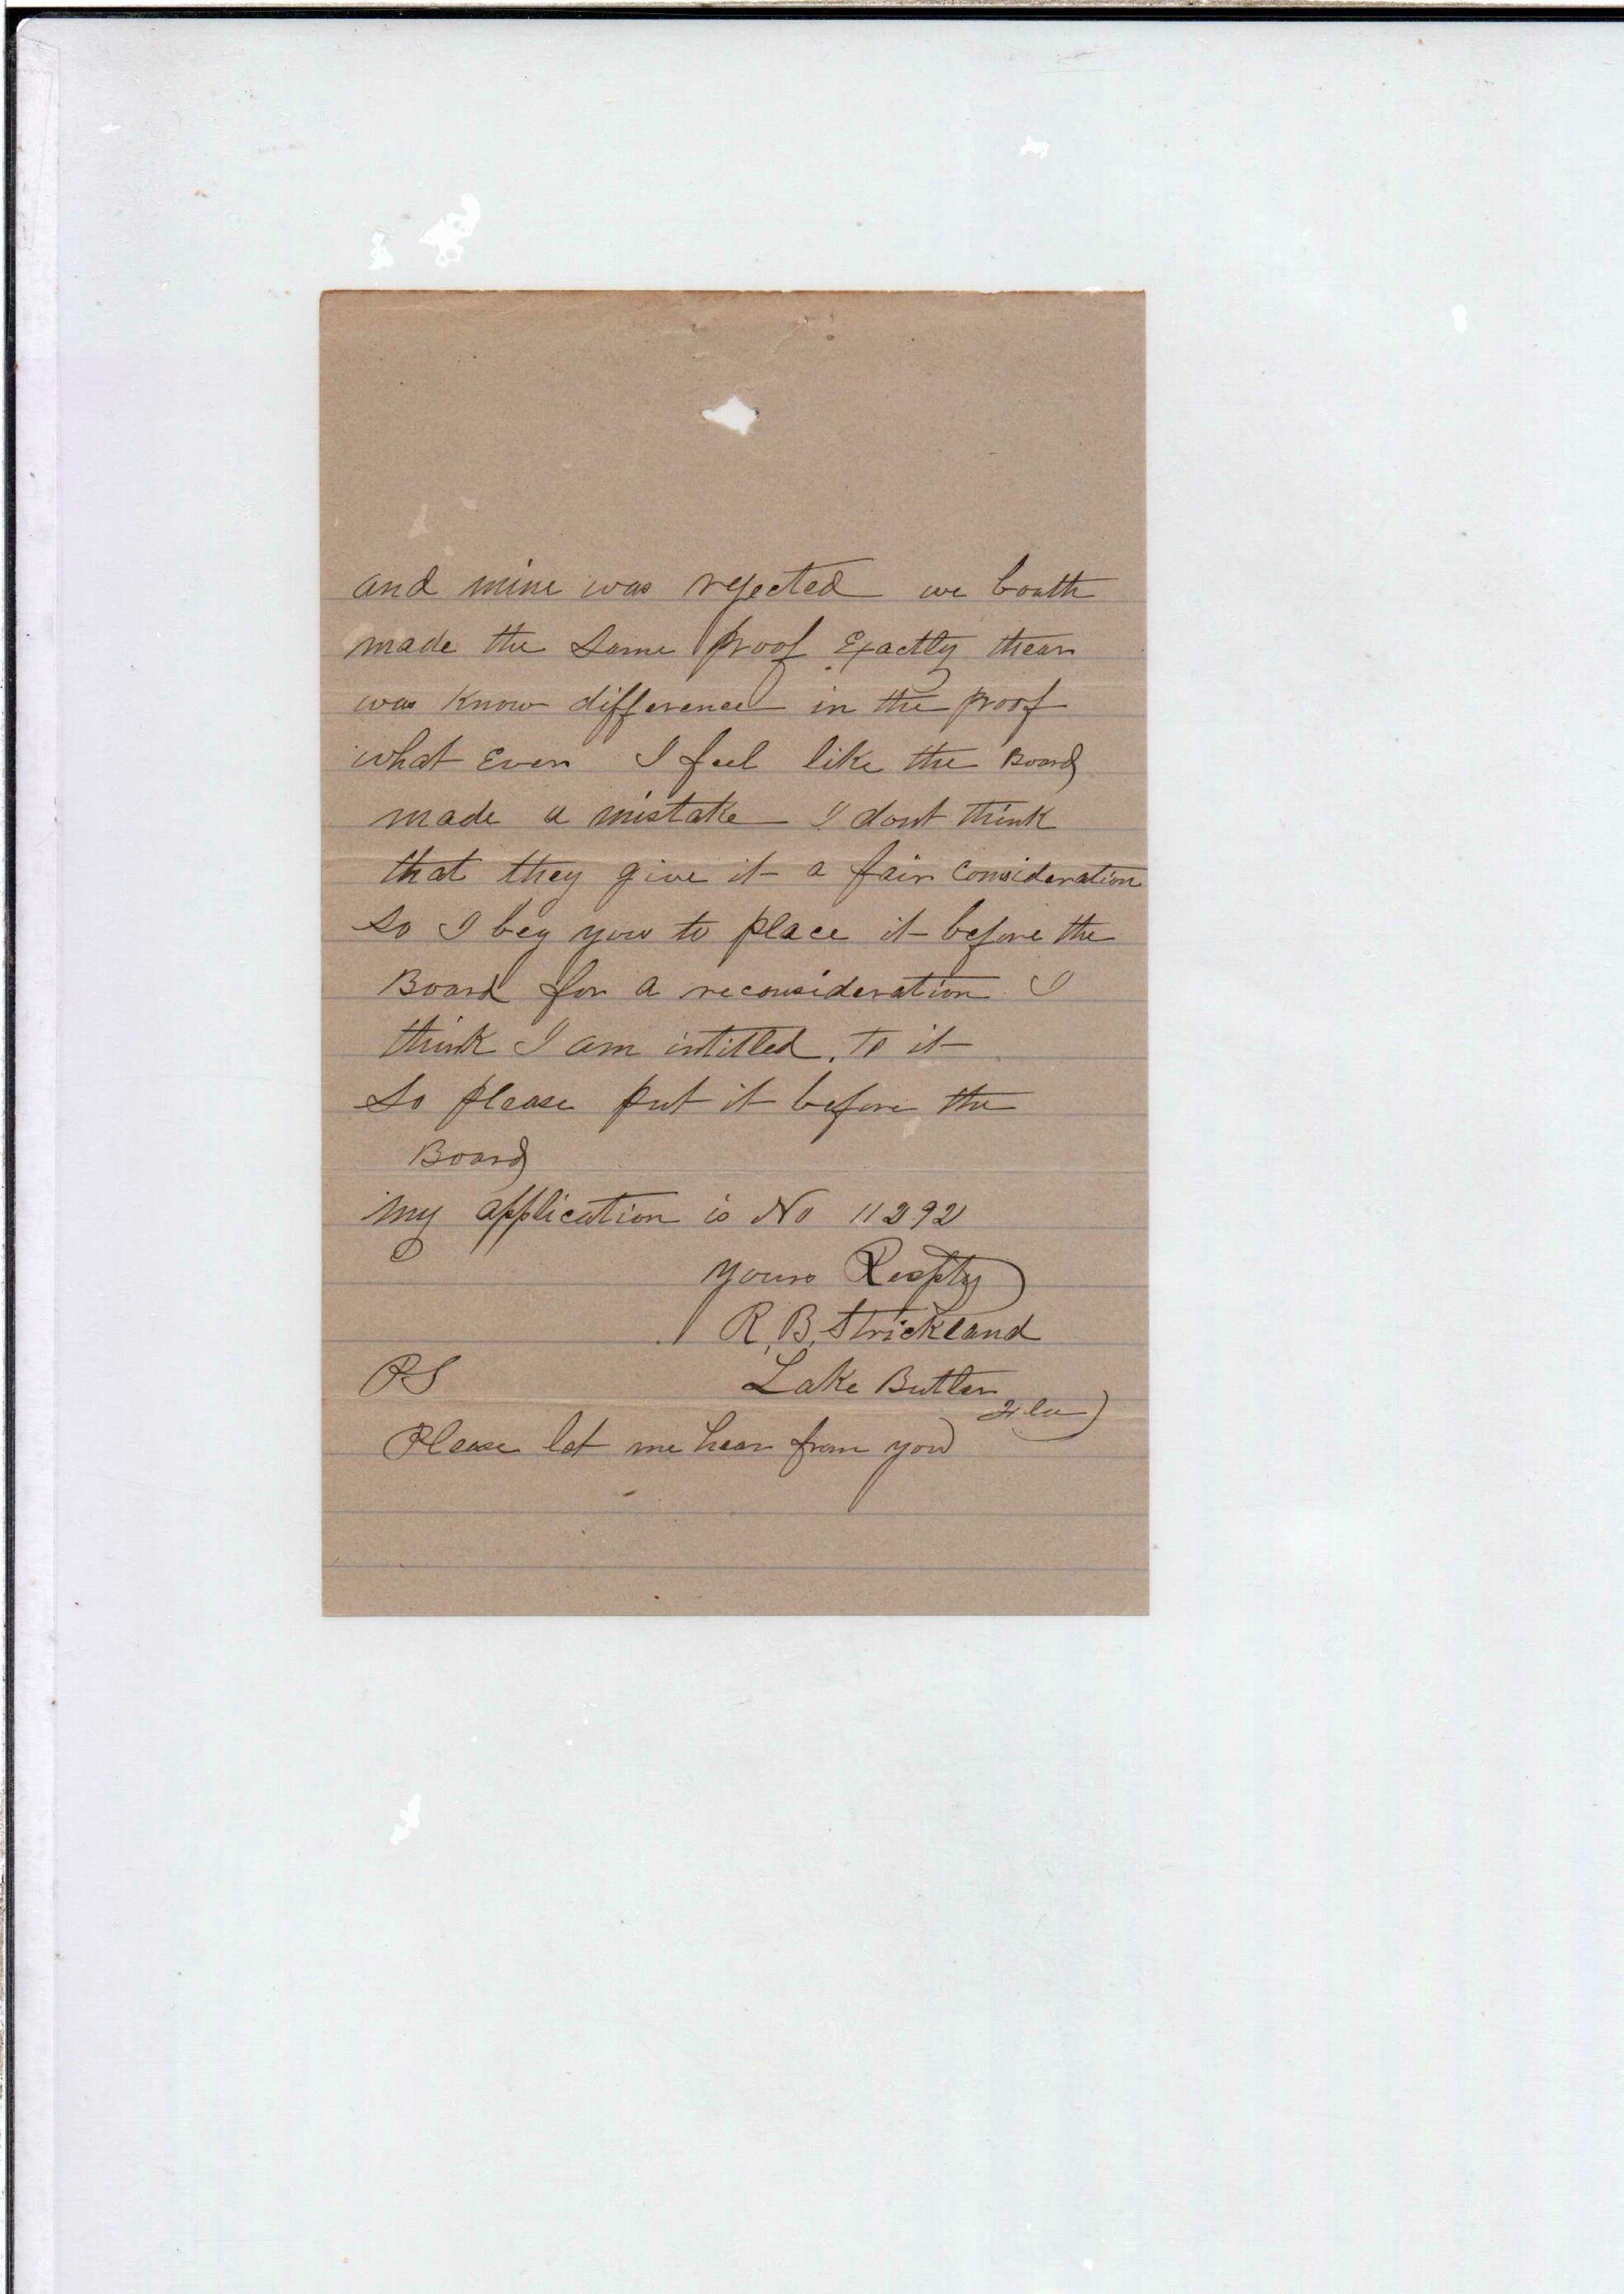 and mine was rejected we bouth
made the same proof Exactly thear
was know difference in the proof
what Ever I feel like the Board
made a mistake I dont think
that they give it a fair consideration
so I beg you to place it before the
Board for a reconsideration I
think I am intitled. To it
so please put it before the
Board
my application is No 11292
yours Respty
R. B. Strickland
PS Lake Butler
Fla
Please let me hear from you